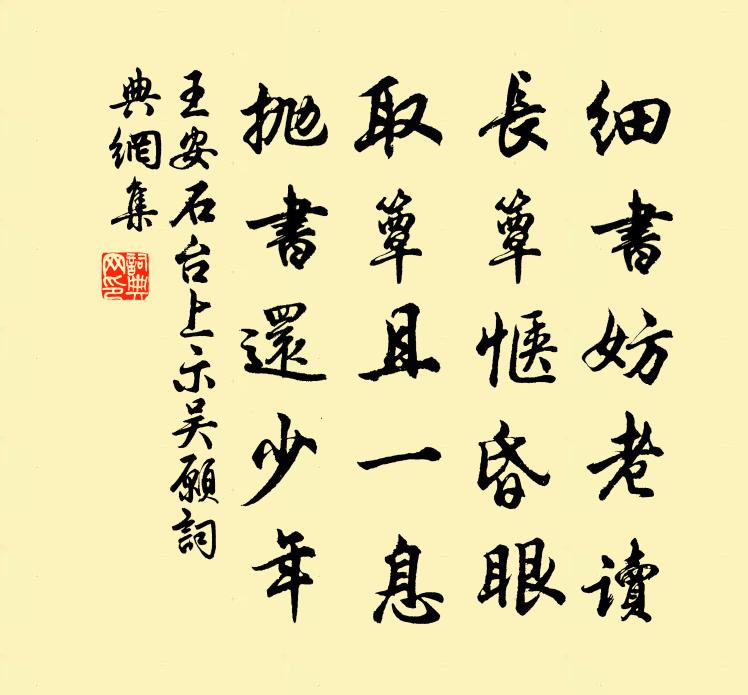 細書妨老讀
長簟愜昏眼
取簟且一息
拋書還少年
王安石台上示吳願詞
典網集
詞典
网印